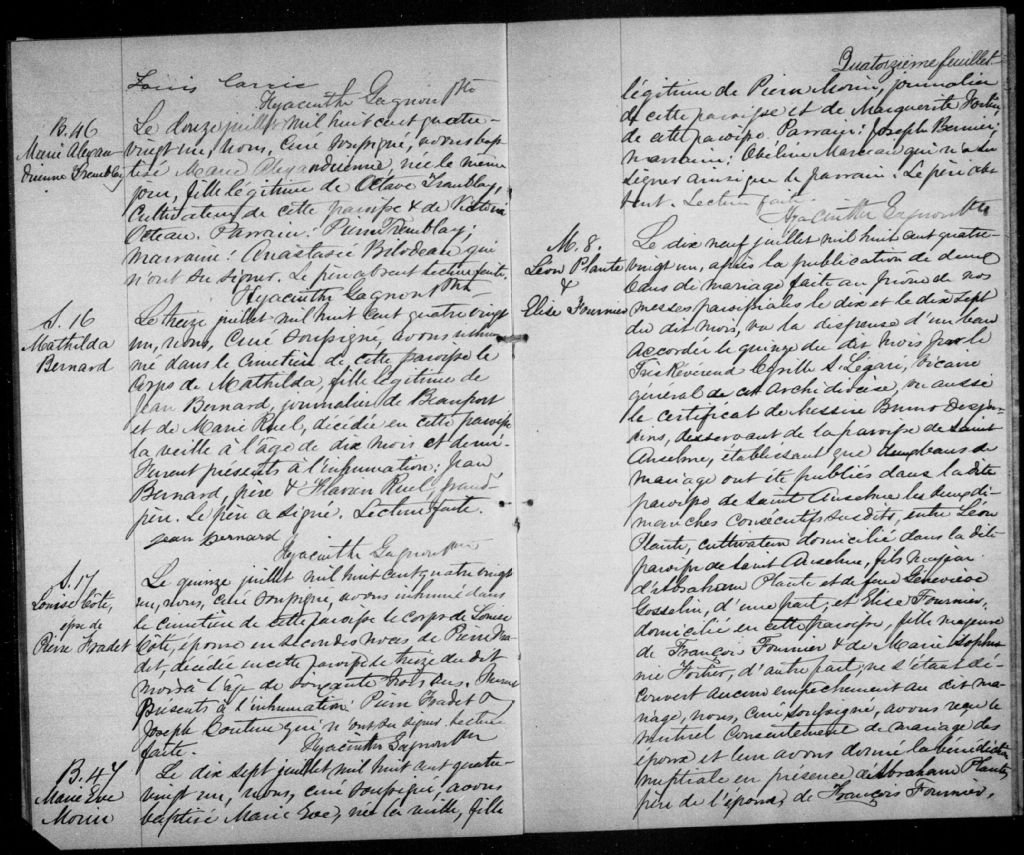 Louis Carrie
Hyacinthe Gagnon Ptre
B. 46
Marie Alexan-
drienne Tremblay
Le douze juillet mil huit cent quatre-
vingt un, nous, curé soussigné, avons bap-
tisé Marie Alexandrienne, née le même
jour, fille légitime de Octave Tremblay,
Cultivateur de cette paroisse & de Victoria
Octeau. Parrain: Pierre Tremblay;
marraine: Anastasie Bilodeau qui
n'ont su signer. Le père absent lecture faite.
Hyacinthe Gagnon Ptre
S. 16
Mathilda
Bernard
Le treize juillet mil huit cent quatre vingt
un, nous, Curé soussigné, avons inhu-
mé dans le Cimetière de cette paroisse le
Corps de Mathilda, fille légitime de
Jean Bernard, journalier de Beauport
et de Marie Ruel, décédée en cette paroisse
la veille à l'âge de dix mois et demi.
Furent présents à l'inhumation: Jean
Bernard, père & Flavien Ruel, grand-
père. Le père a signé. Lecture faite.
jean bernard
Hyacinthe Gagnon Ptre
S. 17
Louise Côté,
epse de
Pierre Fradet
Le quinze juillet mil huit cent quatre vingt
un, nous, curé soussigné, avons inhumé dans
le cimetière de cette paroisse le corps de Louise
Côté, épouse en secondes noces de Pierre Fra-
det, décédée en cette paroisse le treize du dit
mois à l'âge de soixante trois ans. Furent
présents à l'inhumation: Pierre Fradet &
Joseph Couture qui n'ont su signer. Lecture
faite.
Hyacinthe Gagnon Ptre
B. 47
Marie Eve
Morin
Le dix sept juillet mil huit cent quatre-
vingt un, nous, curé soussigné, avons
baptisé Marie Eve, née la veille, fille
Quatorzième feuillet
légitime de Pierre Morin, journalier
de cette paroisse et de Marguerite Fortin,
de cette paroisse. Parrain: Joseph Bernier;
marraine: Obéline Marceau qui n'a su
signer ainsi que le parrain. Le père abs-
ent. Lecture faite.
Hyacinthe Gagnon Ptre
M. 8.
Léon Plante
&
Elise Fournier
Le dix neuf juillet mil huit cent quatre-
vingt un, après la publication de deux
bans de mariage faite au prône de nos
messes paroissiales le dix et le dix sept
du dit mois, vu la dispense d'un ban
accordée le quinze du dit mois par le
Très Révérend Cyrille A. Légaré, vicaire
général de cet Archidiocèse, vu aussi
le certificat de Messire Bruno Desjar-
dins, desservant de la paroisse de Saint
Anselme, établissant que deux bans de
mariage ont été publiés dans la dite
paroisse de Saint Anselme les deux di-
manches Consécutifs susdits, entre Léon
Plante, cultivateur domicilié dans la dite
paroisse de Saint Anselme, fils majeur
d'Abraham Plante et de feue Geneviève
Gosselin, d'une part, et Elise Fournier,
domicilié en cette paroisse, fille majeure
de François Fournier & de Marie Sophro-
nie Fortier, d'autre part, ne s'étant dé-
couvert aucun empêchement au dit ma-
riage, nous, Curé soussigné, avons reçu le
mutuel Consentement de mariage des
époux et leur avons donné la bénédiction
nuptiale en présence d'Abraham Plante,
père de l'époux, de François Fournier,